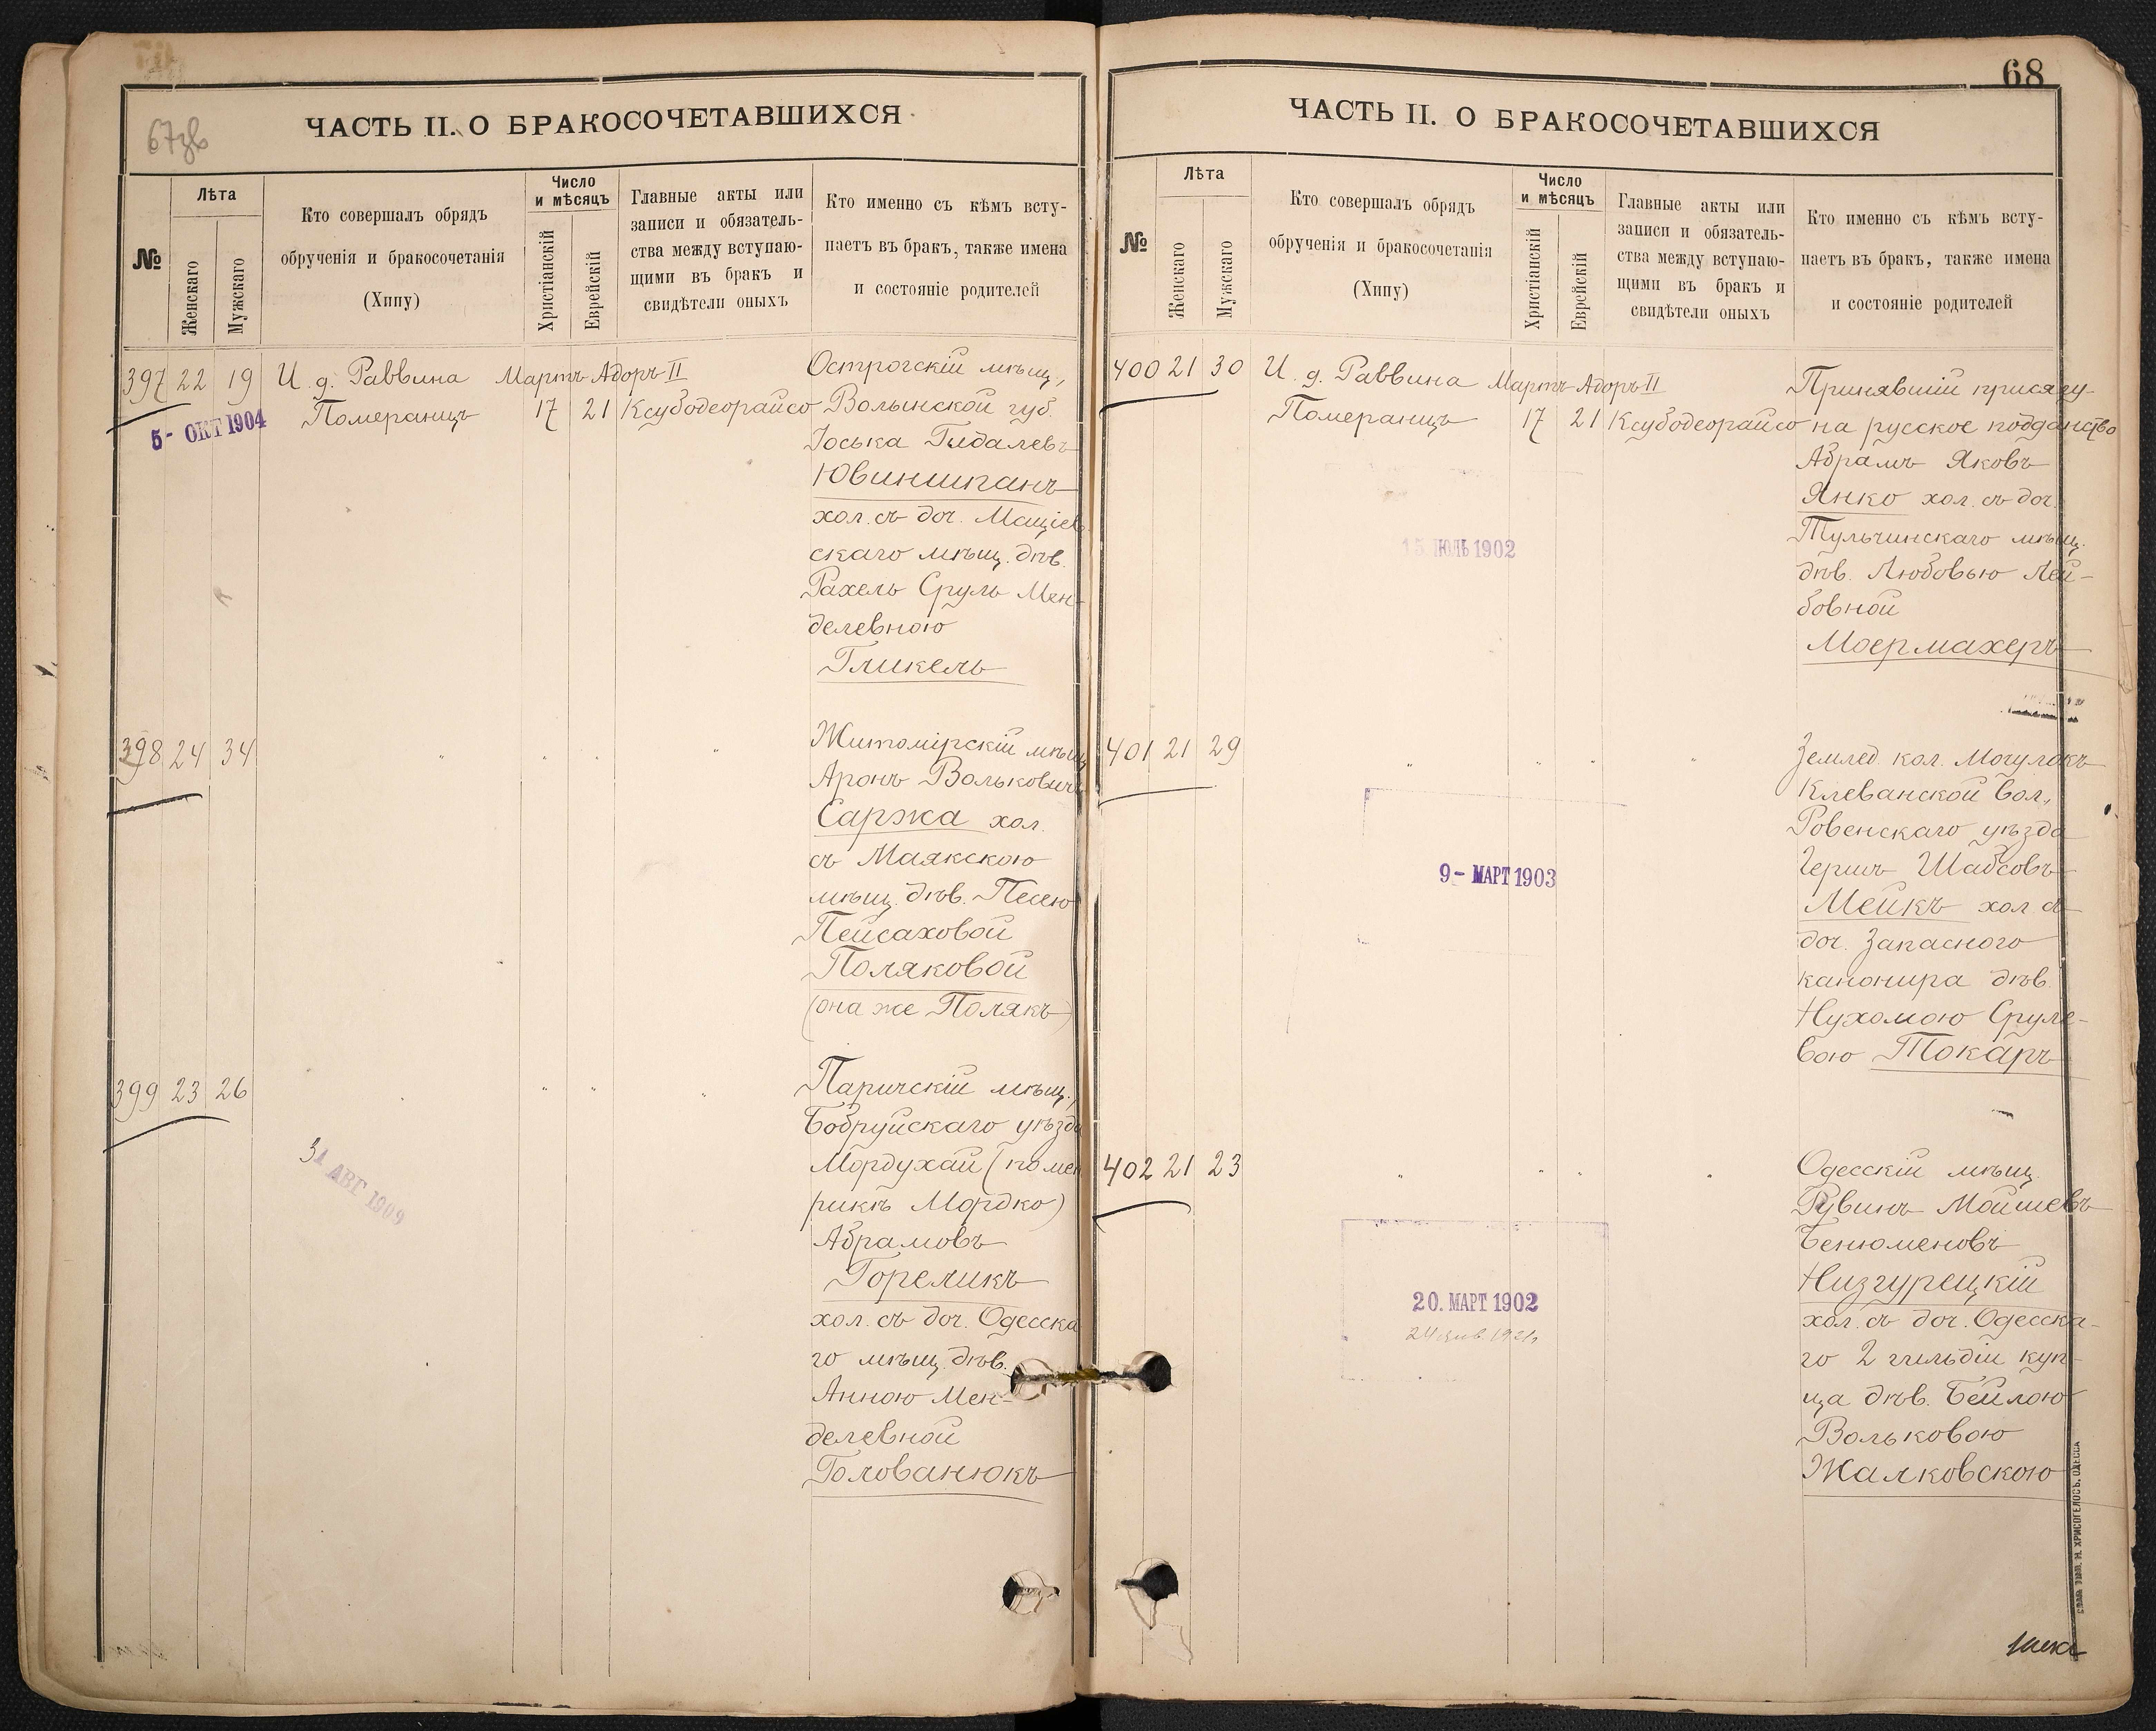 67зв
ЧАСТЬ II. О БРАКОСОЧЕТАВШИХСЯ
№
Лѣта
Женскаго
Мужскаго
Кто совершалъ обрядъ
обрученія и бракосочетанія
(Хипу)
Число
и мѣсяцъ
Христіанскій
Еврейскій
Главные акты или
записи и обязатель-
ства между вступаю-
щими въ бракъ и
свидѣтели оныхъ
Кто именно съ кѣмъ всту-
паетъ въ бракъ, также имена
и состояніе родителей
397 22 19 И. д. Раввина Мартъ Адоръ II
Померанцъ 17 21 Ксубодеорайсо
5- ОКТ 1904
Острогскій мѣщ.,
Волынской губ.
Іоська Гидалевъ
Ювиншпанъ
хол. съ доч. Мацiев
скаго мѣщ. дѣв.
Рахель Сруль Мен-
делевною
Гликель
398 24 34 " " " "
Житомірскій мѣщ
Аронъ Вольковичъ
Саржа хол.
съ Маякскою
мѣщ. дѣв. Песею
Пейсаховой
Поляковой
(она же Полякъ)
399 23 26 " " " "
31 АВГ 1909
Паричскій мѣщ.,
Бобруйскаго уѣзда
Мордухай (по мет
рикѣ Мордко)
Абрамовъ
Гореликъ
хол. съ доч. Одесска
го мѣщ. дѣв.
Анною Мен-
делевной
Голованюкъ
68
ЧАСТЬ II. О БРАКОСОЧЕТАВШИХСЯ
№
Лѣта
Женскаго
Мужскаго
Кто совершалъ обрядъ
обрученія и бракосочетанія
(Хипу)
Число
и мѣсяцъ
Христіанскій
Еврейскій
Главные акты или
записи и обязатель-
ства между вступаю-
щими въ бракъ и
свидѣтели оныхъ
Кто именно съ кѣмъ всту-
паетъ въ бракъ, также имена
и состояніе родителей
400 21 30 И. д. Раввина Мартъ Адоръ II
Померанцъ 17 21 Ксубодеорайсо
15 ІЮЛЬ 1902
Принявшій присягу
на русское подданство
Абрамъ Яковъ
Янко хол. съ доч.
Тульчинскаго мѣщ.
дѣв. Любовью Лей-
бовной
Моермахеръ
401 21 29 " " " "
9- МАРТ 1903
Землед. кол. Могулокъ
Клеванской вол.,
Ровенскаго уѣзда
Гершъ Шабсовъ
Мейкъ хол. съ
доч. Запасного
канонира дѣв.
Нухомою Сруле-
вою Токаръ
402 21 23 " " " "
20. МАРТ 1902
Одесскій мѣщ.
Рувинъ Мойшевъ
Бенюменовъ
Низгурецкій
хол. съ доч. Одесска-
го 2 гильдіи куп-
ца дѣв. Бейлою
Вольковою
Жалковскою